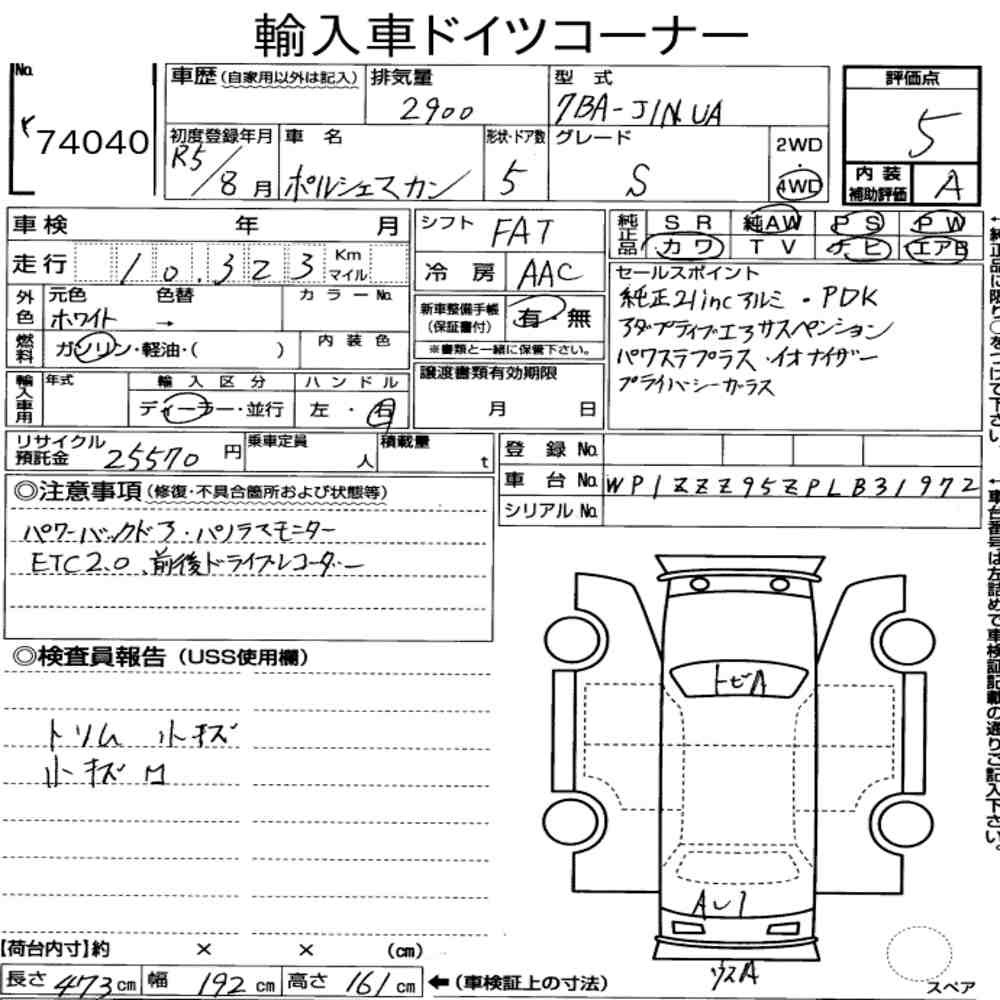 輸入車ドイツコーナー
No.
74040
車歴(自家用以外は記入)
排気量
2900
型 式
7BA-J1NUA
評価点
5
初度登録年月
R5/8月
車 名
ポルシェマカン
形状・ドア数
5
グレード
S
2WD
・
4WD
内装
補助評価
A
車検 年 月
シフト
FAT
純正品
SR 純AW PS PW
カワ TV ナビ エアB
走行
10,323
Km
マイル
冷房
AAC
セールスポイント
純正21incアルミ・PDK
アダプティブエアサスペンション
パワステプラス・イオナイザー
プライバシーガラス
外色
元色 色替
ホワイト →
カラーNo.
新車整備手帳
(保証書付)
有・無
※書類と一緒に保管下さい。
燃料
ガソリン・軽油・( )
内装色
輸入車用
年式
輸入区分
ディーラー・並行
ハンドル
左・右
譲渡書類有効期限
月 日
リサイクル
預託金
25570円
乗車定員
人
積載量
t
登録No.
車台No.
WP1ZZZ95ZPLB31972
シリアルNo.
◎注意事項(修復・不具合箇所および状態等)
パワーバックドア・パノラマモニター
ETC2.0、前後ドライブレコーダー
◎検査員報告(USS使用欄)
トリム小キズ
小キズ
トビA
AU1
ウスA
スペア
【荷台内寸】約 × × (cm)
長さ 473cm 幅 192cm 高さ 161cm ←(車検証上の寸法)
←純正品に限り○をつけて下さい。
←車台番号は左詰めで車検証記載の通りご記入下さい。